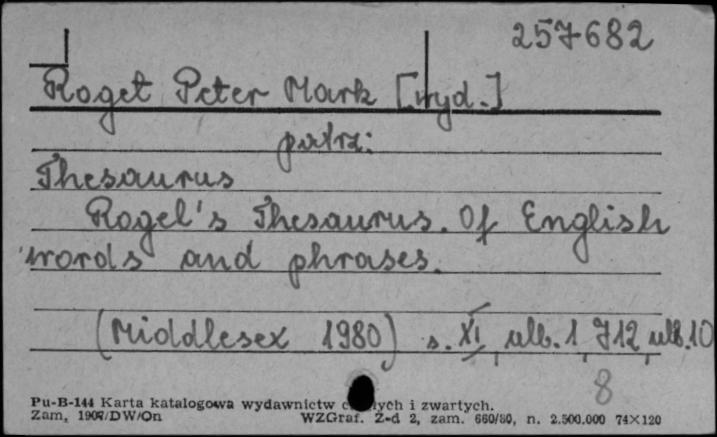 257682
Roget Peter Mark [wyd.]
patrz:
Thesaurus
Rogel's Thesaurus. Of English
words and phrases.
(Middlesex 1980) s. XI, ulb. 1, 712, ulb. 10
8
Pu-B-144 Karta katalogowa wydawnictw i zwartych.
Zam, 1907/DW/On WZGraf. Z-d 2, zam. 660/80, n. 2.500.000 74×120